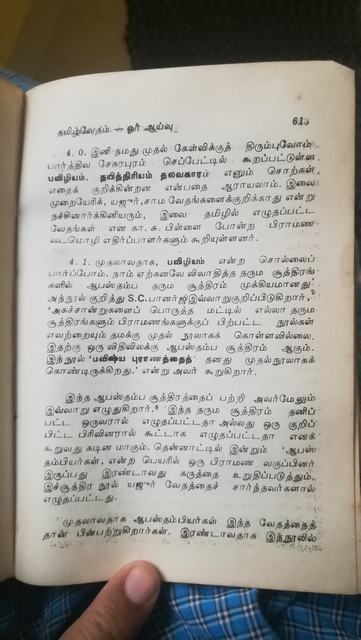 தமிழ்வேதம் — ஓர் ஆய்வு
4. 0. இனி நமது முதல் கேள்விக்குத் திரும்புவோம்
பார்த்திவ சேகரபுரம் செப்பேட்டில் கூறப்பட்டுள்ள
பவிழியம். தயித்திரியம் தலவகாரம் எனும் சொற்கள்
எதைக் குறிக்கின்றன என்பதை ஆராயலாம். இவை
முறையேரிக், யஜுர்,சாம வேதங்களைக்குறிக்காது என்று
நச்சினார்க்கினியரும், இவை தமிழில் எழுதப்பட்ட
வேதங்கள் என கா. சு. பிள்ளை போன்ற பிராமண
வடமொழி எதிர்ப்பாளர்களும் கூறியுள்ளனர்.
4. 1. முதலாவதாக, பவிழியம் என்ற சொல்லைப்
பார்ப்போம். நாம் ஏற்கனவே விவாதித்த தரும சூத்திரங்
களில் ஆபஸ்தம்ப தரும சூத்திரம் முக்கியமானது
அந்நூல் குறித்து S.C.பானர்ஜிஇவ்வாறுகுறிப்பிடுகிறார்,
'அகச்சான்றுகளைப் பொருத்த மட்டில் எல்லா தரும
சூத்திரங்களும் பிராமணங்களுக்குப் பிற்பட்ட நூல்கள்
எவற்றையும் தமக்கு முதல் நூலாகக் கொள்ளவில்லை.
இதற்கு ஒரு விதிவிலக்கு ஆபஸ்தம்ப சூத்திரம் ஆகும்.
இந்நூல் 'பவிஷ்ய புராணத்தைத்' தனது முதல்நூலாகக்
கொண்டிருக்கிறது.' என்று அவர் கூறுகிறார்.
இந்த ஆபஸ்தம்ப சூத்திரத்தைப் பற்றி அவர்மேலும்
இவ்வாறு எழுதுகிறார்.⁸ 'இந்த தரும சூத்திரம் தனிப்
பட்ட ஒருவரால் எழுதப்பட்டதா அல்லது ஒரு குறிப்
பிட்ட பிரிவினரால் கூட்டாக எழுதப்பட்டதா எனக்
கூறுவது கடினமாகும். தென்னாட்டில் இன்றும் 'ஆபஸ்
தம்பியர்கள், என்ற பெயரில் ஒரு பிராமண வகுப்பினர்
இருப்பது இரண்டாவது கருத்தை உறுதிப்படுத்தும்.
இச்சூத்திர நூல் யஜுர் வேதத்தைச் சார்ந்தவர்களால்
எழுதப்பட்டது.
முதலாவதாக ஆபஸ்தம்பியர்கள் இந்த வேதத்தைத்
தான் பின்பற்றுகிறார்கள். இரண்டாவதாக இந்நூலில்